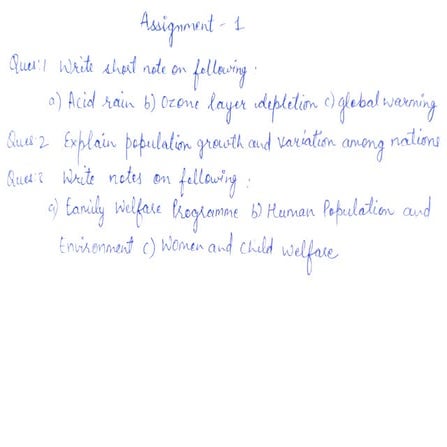 Assignment - 1
Ques:1 Write short note on following.
a) Acid rain b) Ozone layer depletion c) global warming
Ques:2 Explain population growth and variation among nations
Ques:3 Write notes on following:
a) Family Welfare Programme b) Human Population and
Environment c) Women and Child Welfare